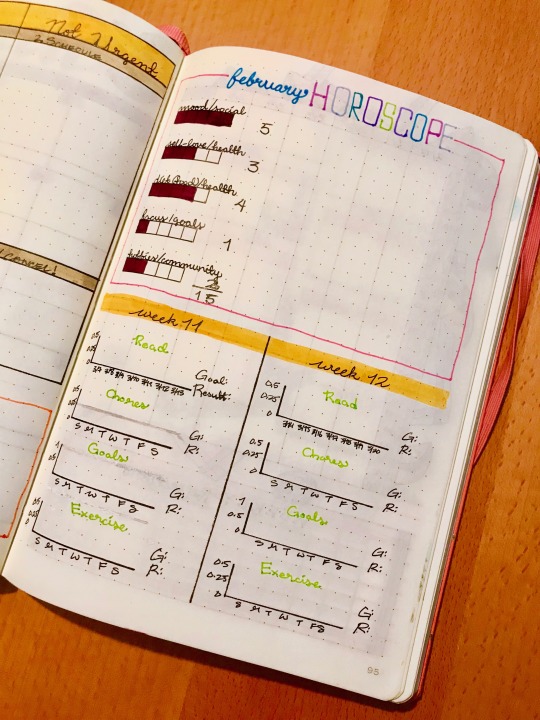 Not Urgent
2. SCHEDULE
february HOROSCOPE
mood/social
5
self-love/health
3
4
focus/goals
1
hobbies/community
2
15
week 11
Read
0.5
0
3/12 3/13
Goal:
Result:
Chores
0.5
0
S M T W T F S
G:
R:
Goals
1
0
S M T W T F S
G:
R:
Exercise
0.5
0
S M T W T F S
G:
R:
week 12
Read
0.5
0.25
0
G:
R:
Chores
0.5
0.25
0
S M T W T F S
G:
R:
Goals
1
0.5
0
S M T W T F S
G:
R:
Exercise
0.5
0.25
0
S M T W T F S
G:
R:
95